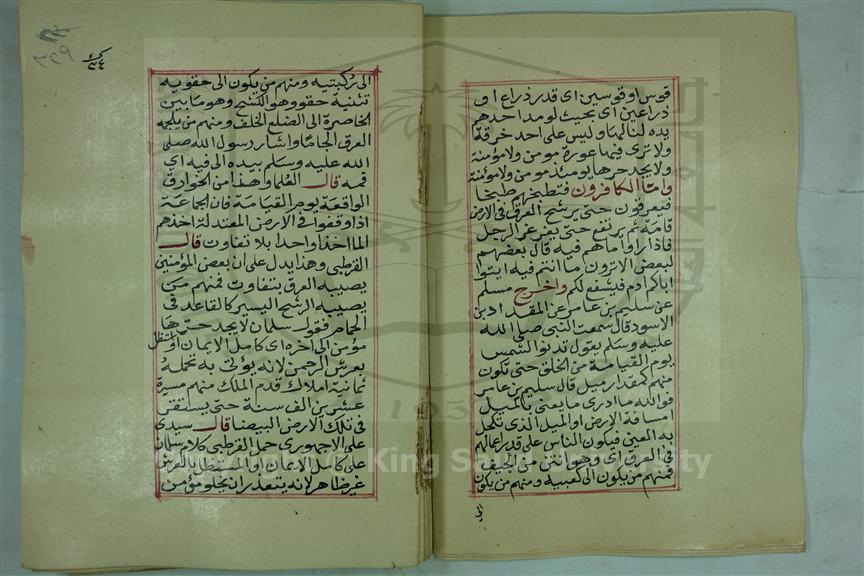 قوس او قوسين اى قدر ذراع او
ذراعين اى بحيث لو مد احدهم
يده لنالها وليس على احد خرقة
ولا ترى فيها عورة مومن ولا مؤمنة
ولا يجد حرها يومئذ مومن ولا مؤمنة
واما الكافرون فتطبخهم طبخا
فيعرقون حتى يرشح العرق فى الارض
قامة ثم يرتفع حتى يغرغر الرجل
فاذا راوا ما هم فيه قال بعضهم
لبعض الا ترون ما انتم فيه ايتوا
اباكم ادم فيشفع لكم واخرج مسلم
عن سليم بن عامر عن المقداد بن
الاسود قال سمعت النبى صلى الله
عليه وسلم يقول تدنو الشمس
يوم القيامة من الخلق حتى تكون
منهم كمقدار ميل قال سليم بن عامر
فوالله ما ادرى ما يعنى بالميل
امسافة الارض او الميل الذى تكحل
به العين فيكون الناس على قدر اعمالهم
فى العرق اى وهو انتن من الجيف
فمنهم من يكون الى كعبيه ومنهم من يكون
الى ركبتيه ومنهم من يكون الى حقويه
تثنية حقو وهو الكشح وهو ما بين
الخاصرة الى الضلع الخلف ومنهم من يلجمه
العرق الجاما واشار رسول الله صلى
الله عليه وسلم بيده الى فيه اى
فمه قال العلما وهذا من الخوارق
الواقعة يوم القيامة فان الجماعة
اذا وقفوا فى الارض المعتدلة اخذهم
الما اخذا واحدا بلا تفاوت قال
القرطبى وهذا يدل على ان بعض المؤمنين
يصيبه العرق بتفاوت فمنهم من
يصيبه الرشح اليسير كالقاعد فى
الحمام فقول سلمان لا يجد حرها
مؤمن الى اخره اى كامل الايمان او استظل
بعرش الرحمن لانه يؤتى به تحمله
ثمانية املاك قدم الملك منهم مسيرة
عشرين الف سنة حتى يستقر
فى تلك الارض البيضا قال سيدى
على الاجهورى حمل القرطبى كلام سلمان
على كامل الايمان او المستظل بالعرش
غير ظاهر لانه يتعذر ان يخلو مؤمن
٨٢٩
٣٤
King Saud University